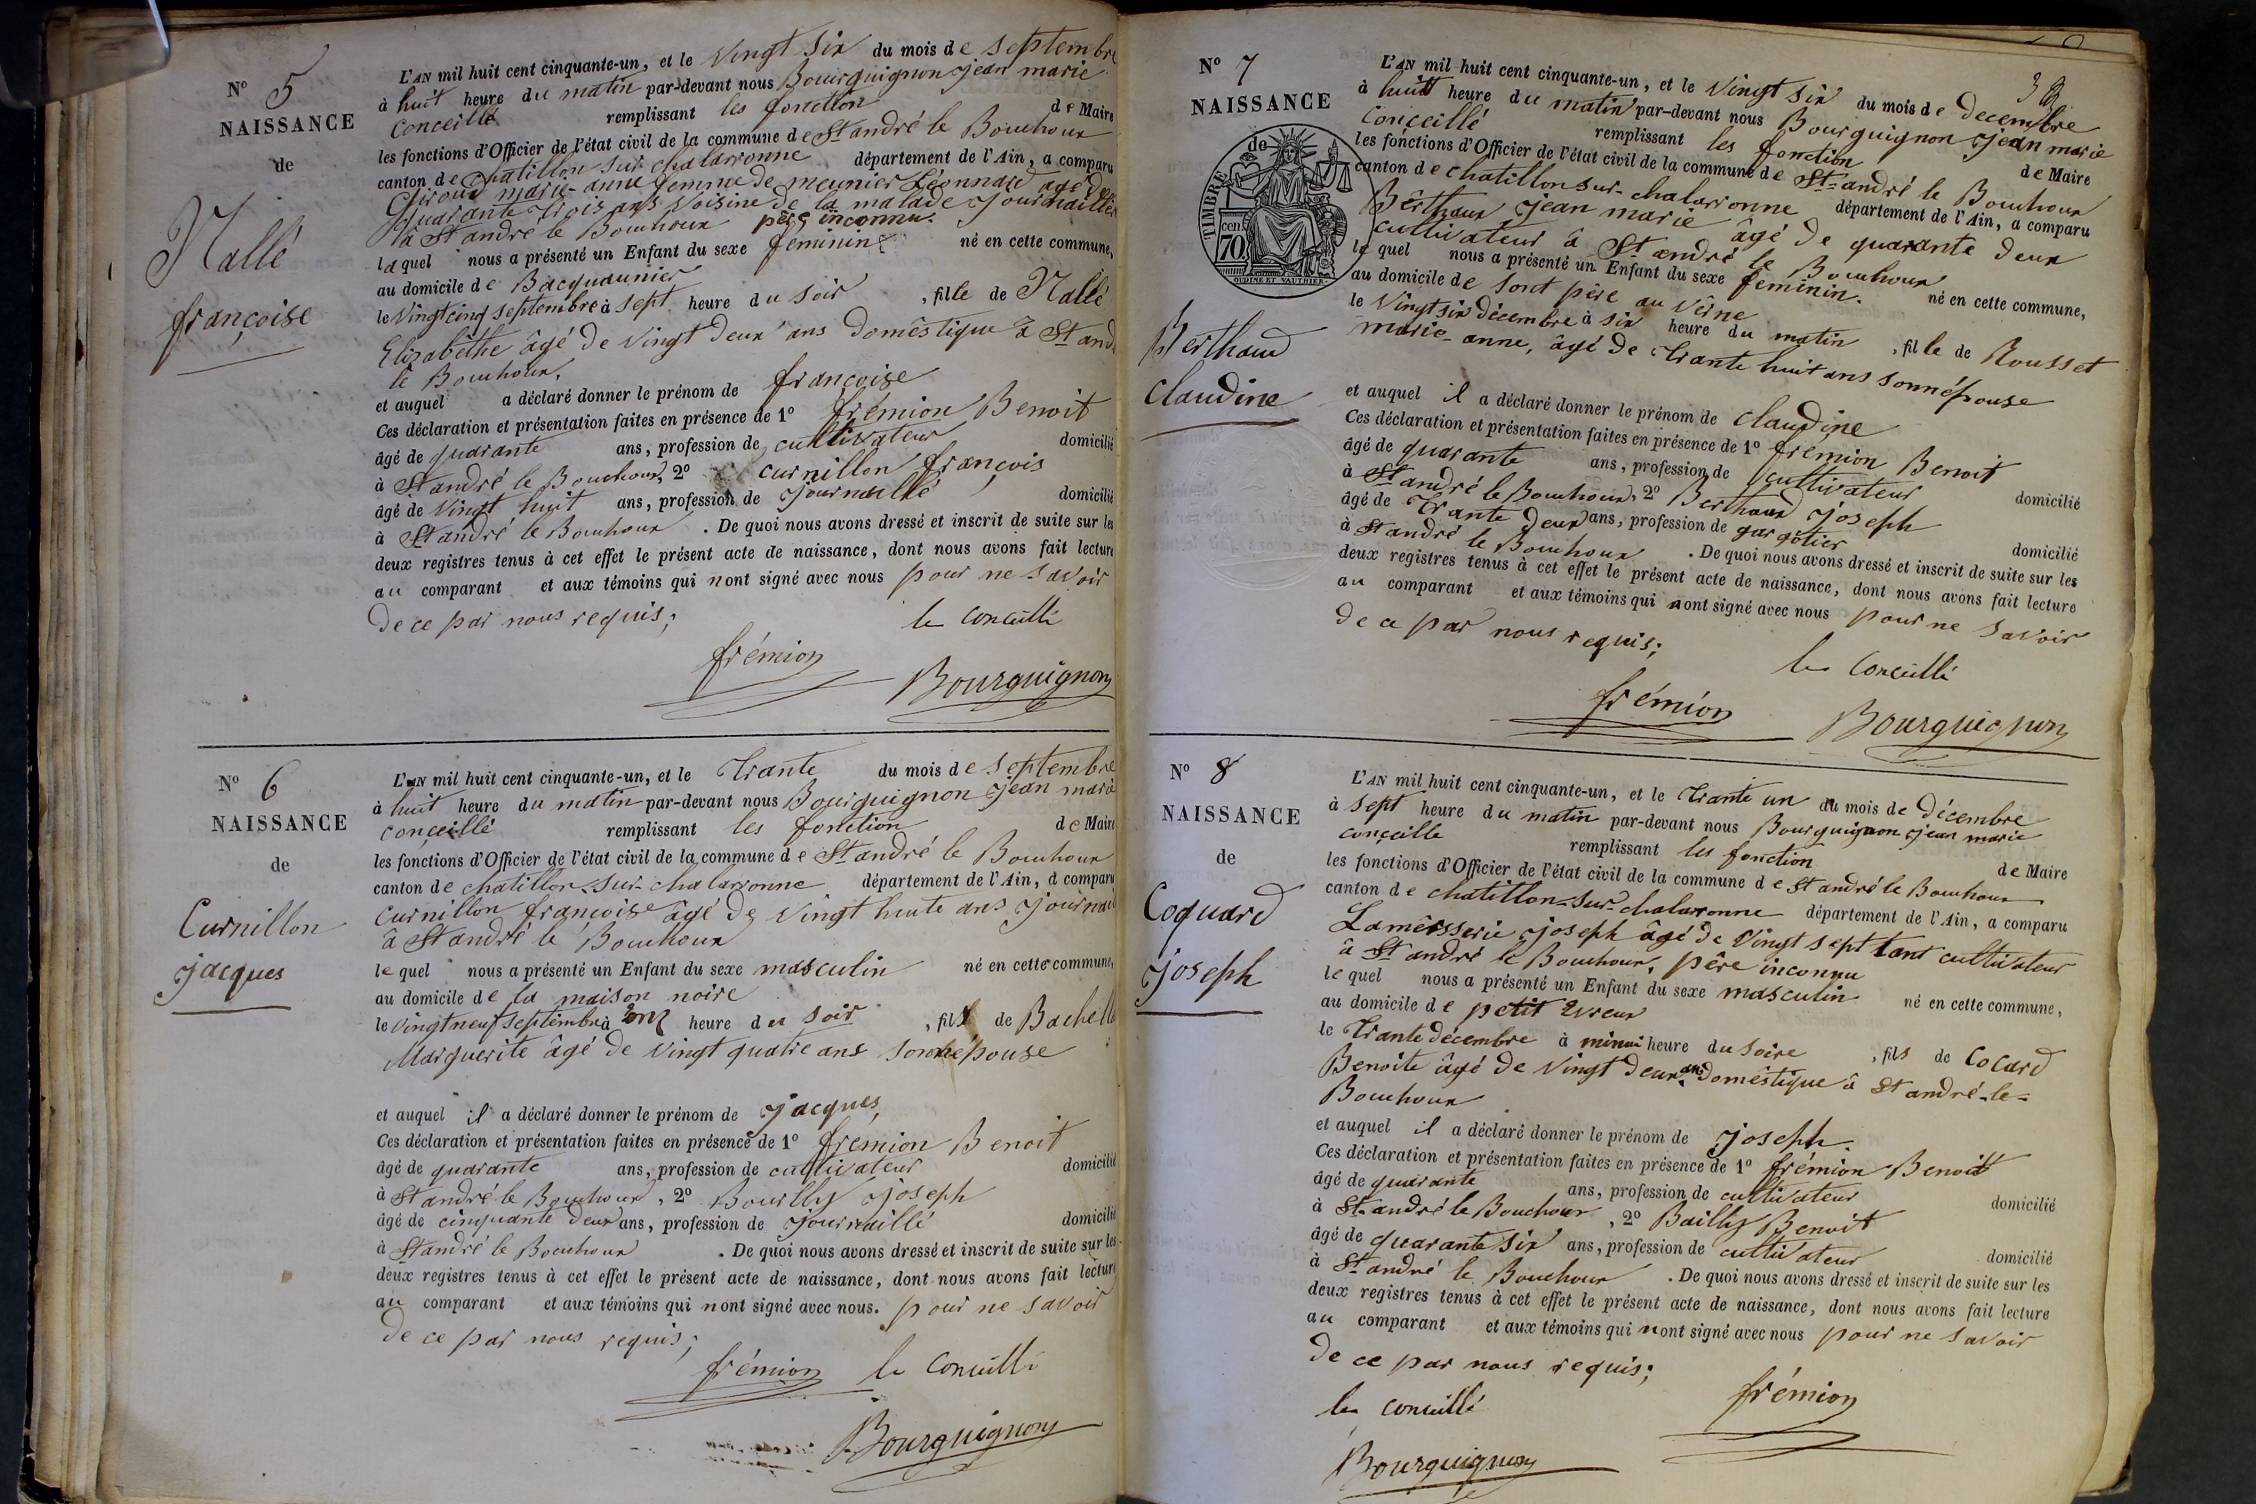 N° 5
NAISSANCE
de
Nallé
françoise
L'AN mil huit cent cinquante-un, et le vingt six du mois de septembre
à huit heure du matin par-devant nous Bourguignon jean marie
conceillé remplissant les fonction de Maire
les fonctions d'Officier de l'état civil de la commune de St andré le Bouchoux
canton de chatillon sur chalaronne département de l'Ain, a comparu
Giroud marie-anne femme de meunier Léonnard agé de
quarante trois ans voisine de la malade journaillée
à St andré le Bouchoux père inconnu.
laquel nous a présenté un Enfant du sexe feminin né en cette commune,
au domicile de Bacquaunier
le vingtcinq septembre à sept heure du soir, fille de Nallé
Elisabéthe âgé de vingt deux ans domêstique à St and
le Bouchoux.
et auquel a déclaré donner le prénom de françoise
Ces déclaration et présentation faites en présence de 1° frémion Benoit
âgé de quarante ans, profession de cultivateur domicilié
à St andré le Bouchoux, 2° curnillon françois
âgé de vingt huit ans, profession de journaillé domicilié
à St andré le Bouchoux. De quoi nous avons dressé et inscrit de suite sur les
deux registres tenus à cet effet le présent acte de naissance, dont nous avons fait lecture
au comparant et aux témoins qui nont signé avec nous pour ne savoir
de ce par nous requis;
le conceillé
frémion
Bourguignon
N° 6
NAISSANCE
de
Curnillon
jacques
L'AN mil huit cent cinquante-un, et le trante du mois de septembre
à huit heure du matin par-devant nous Bourguignon jean marie
conceillé remplissant les fonction de Maire
les fonctions d'Officier de l'état civil de la commune de St andré le Bouchoux
canton de chatillon-sur-chalaronne département de l'Ain, a comparu
Curnillon françoise âgé de vingt huite ans journail
à St andré le Bouchoux
lequel nous a présenté un Enfant du sexe masculin né en cette commune,
au domicile de la maison noire
le vingtneuf septembre à onz heure du soir, fils de Bachelle
Marguerite âgé de vingt quatre ans sonnépouse
et auquel il a déclaré donner le prénom de jacques
Ces déclaration et présentation faites en présence de 1° fremion Benoit
âgé de quarante ans, profession de cultivateur domicilié
à St andré le Bouchoux, 2° Bourlly joseph
âgé de cinquante deux ans, profession de journaillé domicilié
à St andré le Bouchoux. De quoi nous avons dressé et inscrit de suite sur les
deux registres tenus à cet effet le présent acte de naissance, dont nous avons fait lecture
au comparant et aux témoins qui nont signé avec nous. pour ne savoir
de ce par nous requis;
frémion le conceillé
Bourguignon
N° 7
NAISSANCE
de
TIMBRE
70 cen
OUDINE ET VAUTHIER
Berthaud
claudine
L'AN mil huit cent cinquante-un, et le vingt six du mois de decembre
à huit heure du matin par-devant nous Bourguignon jean marie
conceillé remplissant les fonction de Maire
les fonctions d'Officier de l'état civil de la commune de St-andré le Bouchoux
canton de chatillon sur-chalaronne département de l'Ain, a comparu
Bêrthaux jean marie âgé de quarante deux
cultivateur à St andré le Bouchoux
lequel nous a présenté un Enfant du sexe feminin. né en cette commune,
au domicile de sont père au Vêrne
le vingtsix décembre à six heure du matin, fille de Rousset
marie-anne, âgé de trante huit ans sonnépouse
et auquel il a déclaré donner le prénom de claudine
Ces déclaration et présentation faites en présence de 1° frémion Benoit
âgé de quarante ans, profession de cultivateur domicilié
à St andré le Bouchoux, 2° Berthaud joseph
âgé de trante deux ans, profession de gargôtier domicilié
à St andré le Bouchoux. De quoi nous avons dressé et inscrit de suite sur les
deux registres tenus à cet effet le présent acte de naissance, dont nous avons fait lecture
au comparant et aux témoins qui nont signé avec nous pour ne savoir
de ce par nous requis;
le conceillé
frémion
Bourguignon
N° 8
NAISSANCE
de
Coquard
joseph
L'AN mil huit cent cinquante-un, et le trante un du mois de décembre
à sept heure du matin par-devant nous Bourguignon jean marie
conçeille remplissant les fonction de Maire
les fonctions d'Officier de l'état civil de la commune de St andré le Bouchoux
canton de chatillon-sur-chalaronne département de l'Ain, a comparu
Lamêrsserie joseph âgé de vingt sept tant cultivateur
à St andré le Bouchoux, père inconnu
lequel nous a présenté un Enfant du sexe masculin né en cette commune,
au domicile de petit
le trante décembre à minui heure du soire, fils de Cocard
Benoite âgé de vingt deux ans domêstique à St andré-le-
Bouchoux
et auquel il a déclaré donner le prénom de joseph.
Ces déclaration et présentation faites en présence de 1° frémion Benoit
âgé de quarante ans, profession de cultivateur domicilié
à St-andré le Bouchoux, 2° Bailly Benoit
âgé de quarante six ans, profession de cultivateur domicilié
à St andré le Bouchoux. De quoi nous avons dressé et inscrit de suite sur les
deux registres tenus à cet effet le présent acte de naissance, dont nous avons fait lecture
au comparant et aux témoins qui nont signé avec nous pour ne savoir
de ce par nous requis;
le conceillé frémion
Bourguignon